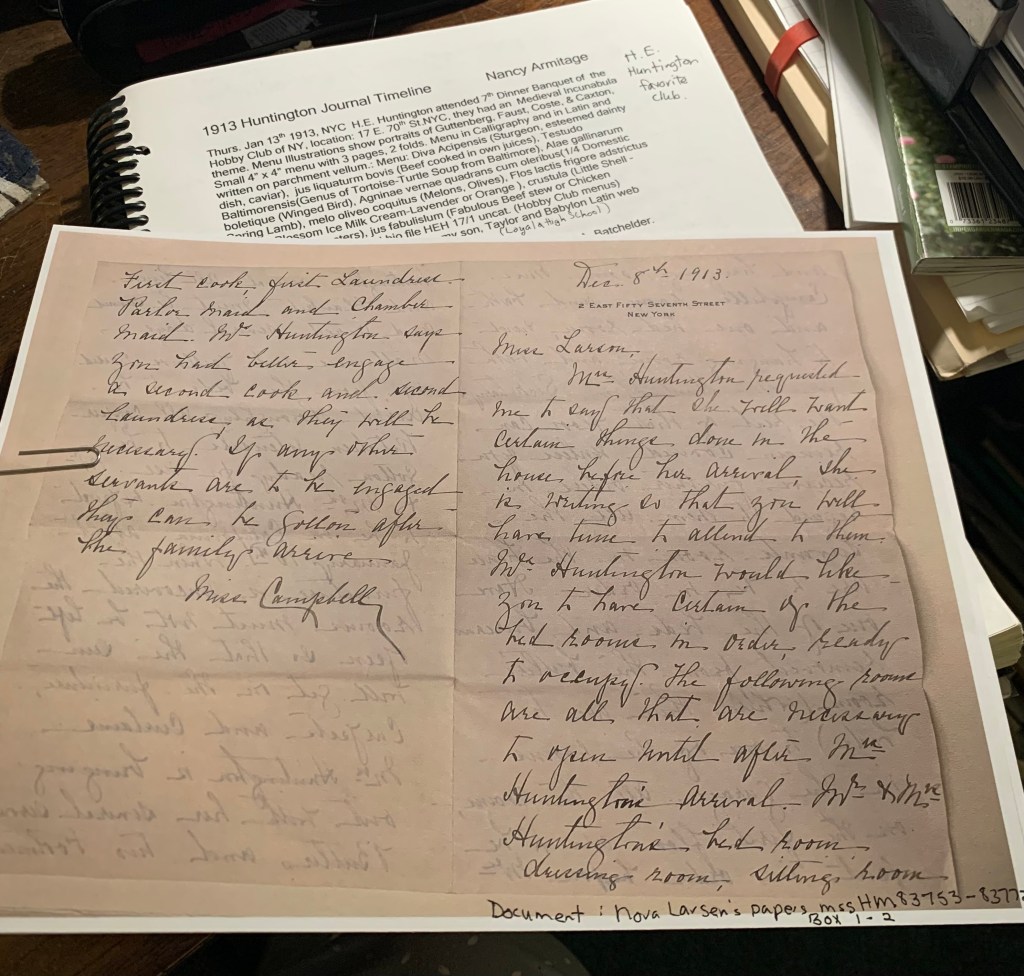 1913 Huntington Journal Timeline
Nancy Armitage
H.E.
Huntington
favorite
club.
Thurs. Jan 13th 1913, NYC H.E. Huntington attended 7th Dinner Banquet of the
Hobby Club of NY, location: 17 E. 70th St.NYC, they had an Medieval Incunabula
theme. Menu Illustrations show portraits of Guttenberg, Faust, Coste, & Caxton,
Small 4" x 4" menu with 3 pages, 2 folds. Menu in Calligraphy and in Latin and
written on parchment vellum.: Menu: Diva Acipensis (Sturgeon, esteemed dainty
dish, caviar), jus liquaturm bovis (Beef cooked in own juices), Testudo
Baltimorensis(Genus of Tortoise-Turtle Soup from Baltimore), Alae gallinarum
boletique (Winged Bird), Agninae vernae quadrans cum oleribus(1/4 Domestic
Spring Lamb), melo oliveo coquitus (Melons, Olives), Flos lactis frigore adstrictus
lossom Ice Milk Cream-Lavender or Orange ), crustula (Little Shell -
ters), jus fabulislum (Fabulous Beef stew or Chicken
bio file HEH 17/1 uncat. (Hobby Club menus)
my son, Taylor and Babylon Latin web
(Loyola High School)
Batchelder.
First cook, first Laundress.
Parlor maid and Chamber
maid. Mrs Huntington says
you had better engage
a second cook and second
Laundress, as they will be
necessary. If any other
servants are to be engaged
they can be gotton after
the family arrive
Miss Campbell
Dec. 8th 1913.
2 EAST FIFTY SEVENTH STREET
NEW YORK
Miss Larson,
Mrs Huntington requested
me to say that she will want
certain things done in the
house before her arrival, she
is writing so that you will
have time to attend to them.
Mrs Huntington would like
you to have certain of the
bed rooms in order, ready
to occupy. The following rooms
are all that are necessary
to open until after Mrs
Huntington's arrival. Mr & Mrs
Huntington's bed room
dressing room, sitting room
Document: Nova Larsen's papers mssHM83753-8377
Box 1-2